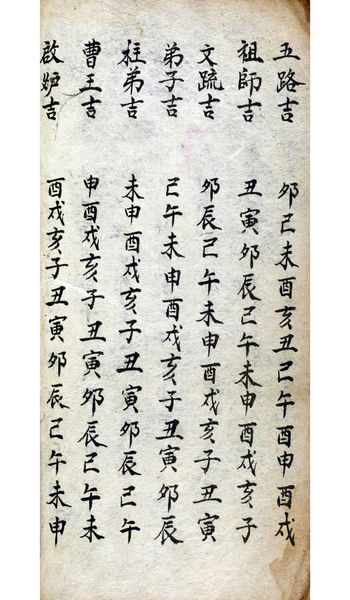 五路吉 卯巳未酉亥丑巳午酉申酉戌
祖師吉 丑寅卯辰巳午未申酉戌亥子
文疏吉 卯辰巳午未申酉戌亥子丑寅
弟子吉 巳午未申酉戌亥子丑寅卯辰
枉弟吉 未申酉戌亥子丑寅卯辰巳午
曹王吉 申酉戌亥子丑寅卯辰巳午未
啟妒吉 酉戌亥子丑寅卯辰巳午未申